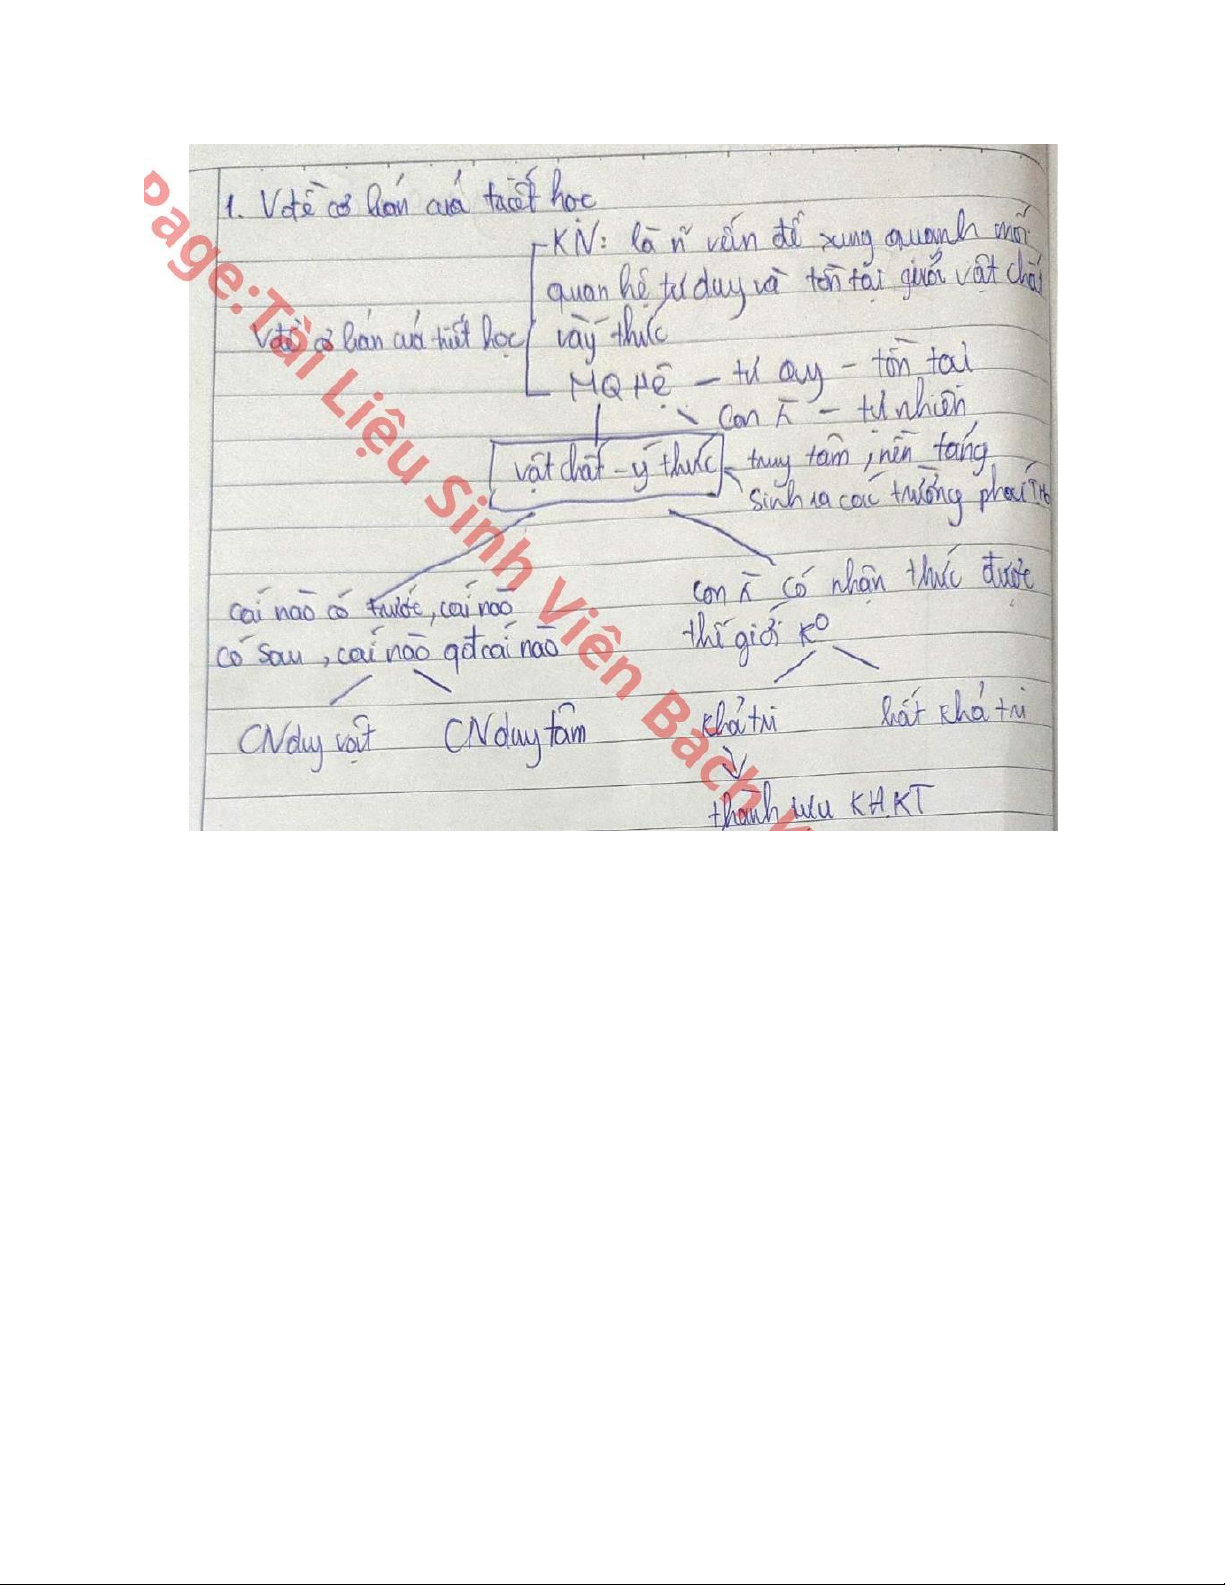 1. Vđề cơ bản của triết học
KN: là n~ vấn đề xung quanh mối
quan hệ tư duy và tồn tại giữa vật chất
Vđề cơ bản của triết học
và ý thức
MQ HỆ – tư duy – tồn tại
con ng – tự nhiên
vật chất – ý thức
truy tâm, nền tảng
sinh ra các trường phái TH
con ng có nhận thức được
cái nào có trước, cái nào
thế giới ko
có sau, cái nào qđ cái nào
CN duy vật
CN duy tâm
khả tri
bất khả tri
thành tựu KHKT
Page: Tài Liệu Sinh Viên Bách